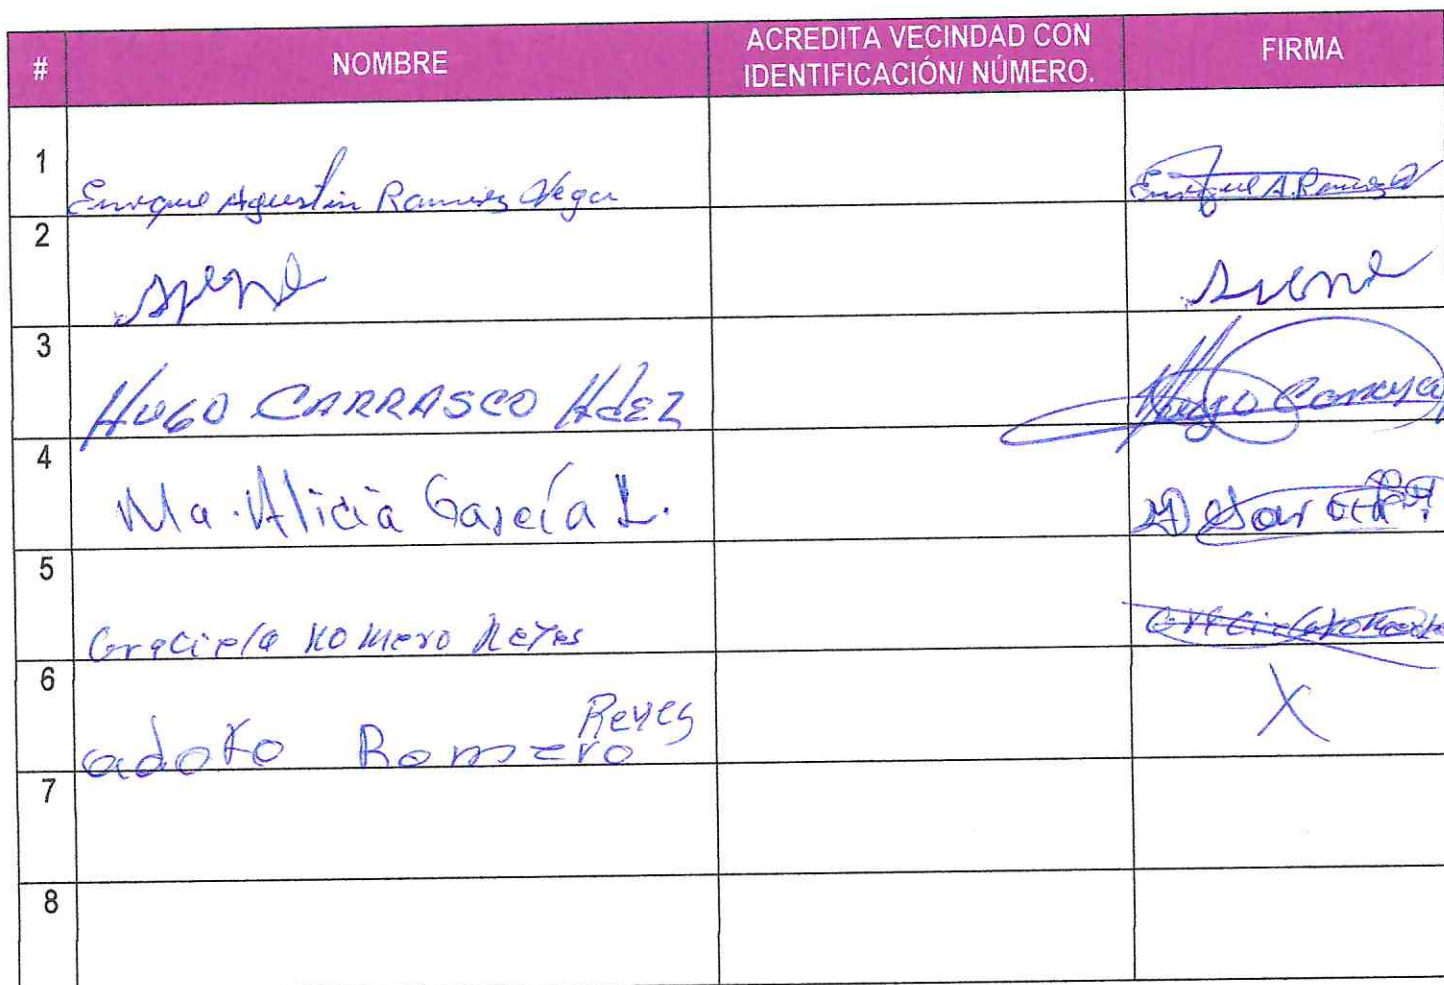 # NOMBRE ACREDITA VECINDAD CON IDENTIFICACIÓN/ NÚMERO. FIRMA
1 Enrique Agustin Ramirez Vega Enrique A. Ramirez V
2
3 HUGO CARRASCO HdEZ Hugo
4 Ma. Alicia García L.
5 Graciela Romero Reyes
6 adolfo Romero Reyes X
7
8